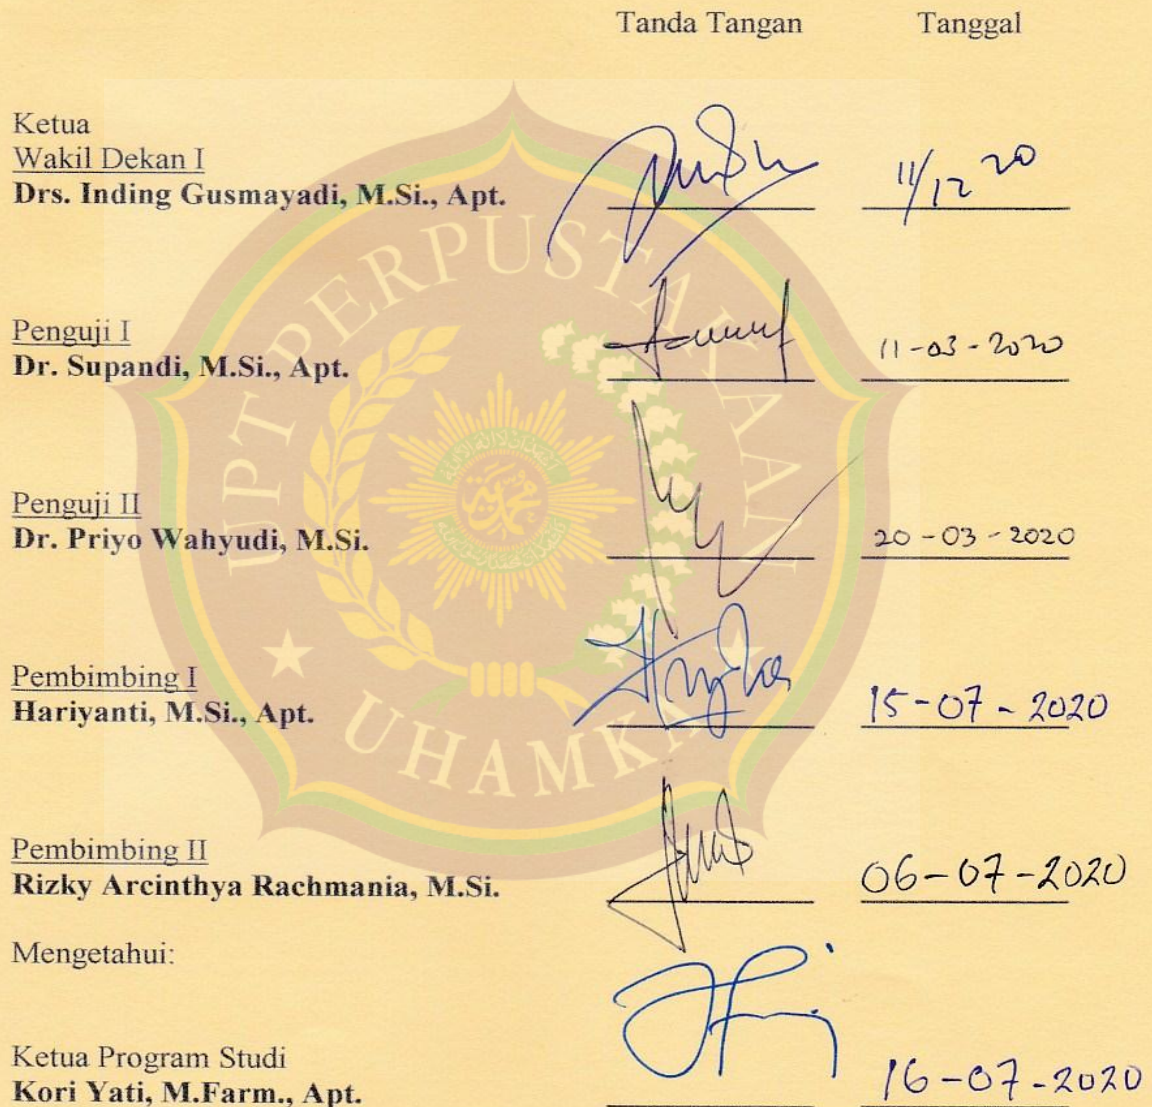 Tanda Tangan Tanggal
Ketua
Wakil Dekan I
Drs. Inding Gusmayadi, M.Si., Apt. 11/12 20
Penguji I
Dr. Supandi, M.Si., Apt. 11-03-2020
Penguji II
Dr. Priyo Wahyudi, M.Si. 20-03-2020
Pembimbing I
Hariyanti, M.Si., Apt. 15-07-2020
Pembimbing II
Rizky Arcinthya Rachmania, M.Si. 06-07-2020
Mengetahui:
Ketua Program Studi
Kori Yati, M.Farm., Apt. 16-07-2020
UPT PERPUSTAKAAN
UHAMKA